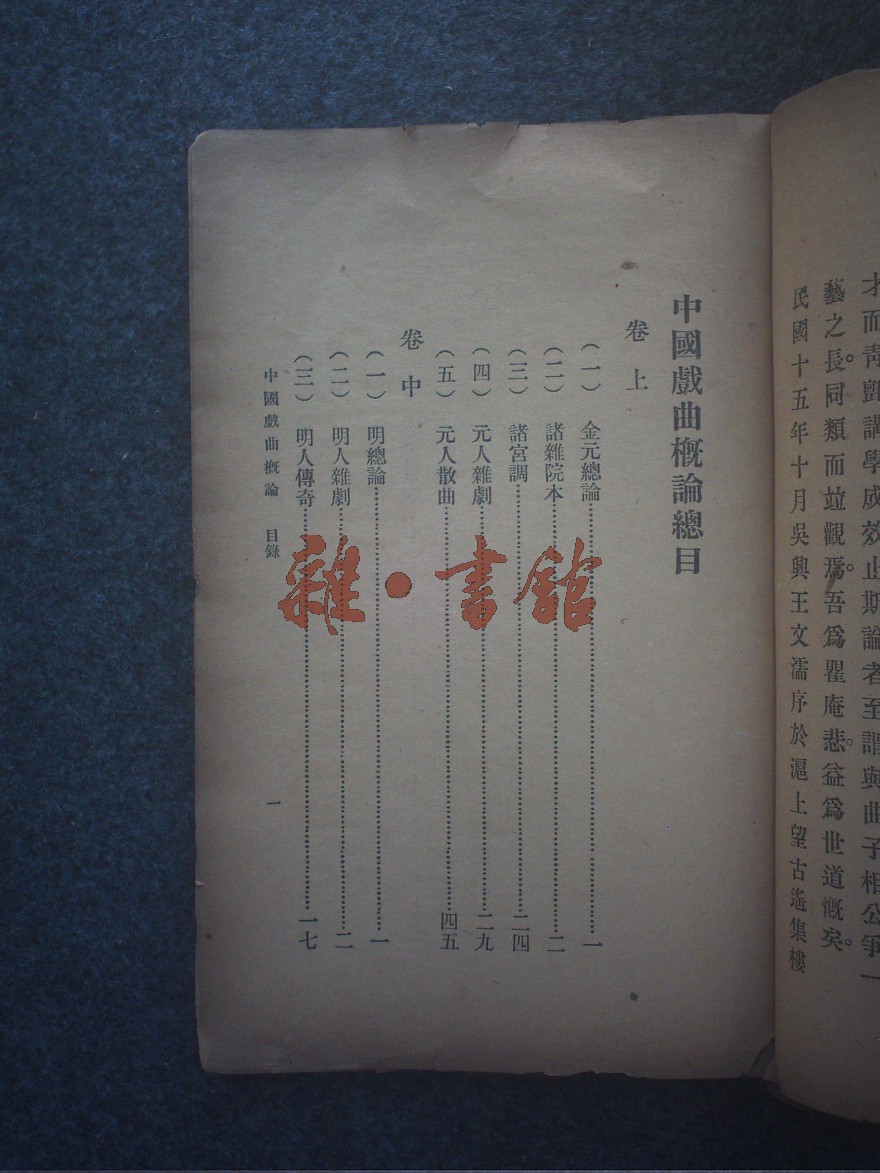 才而靑氈講學成效止斯論者至謂與曲子相公爭一
藝之長。同類而竝觀焉。吾爲瞿庵悲。益爲世道慨矣。
民國十五年十月吳興王文濡序於滬上望古遙集樓
中國戲曲概論總目
卷上
(一) 金元總論……一
(二) 諸雜院本……二
(三) 諸宮調……二四
(四) 元人雜劇……二九
(五) 元人散曲……四五
卷中
(一) 明總論……一
(二) 明人雜劇……二
(三) 明人傳奇……一七
中國戲曲概論 目錄
一
雜·書館